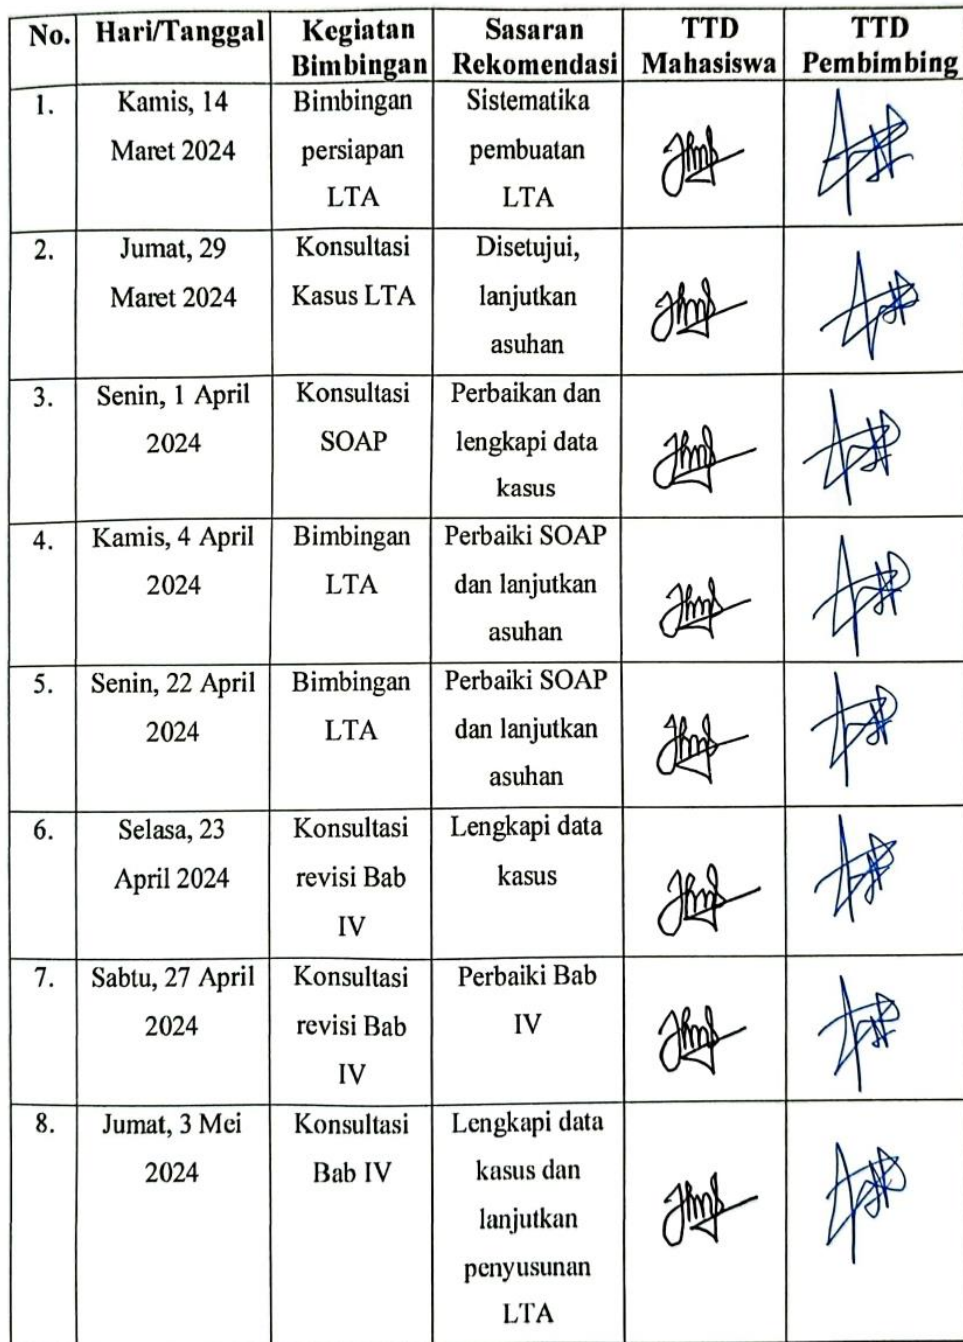 No. Hari/Tanggal Kegiatan Bimbingan Sasaran Rekomendasi TTD Mahasiswa TTD Pembimbing
1. Kamis, 14 Maret 2024 Bimbingan persiapan LTA Sistematika pembuatan LTA
2. Jumat, 29 Maret 2024 Konsultasi Kasus LTA Disetujui, lanjutkan asuhan
3. Senin, 1 April 2024 Konsultasi SOAP Perbaikan dan lengkapi data kasus
4. Kamis, 4 April 2024 Bimbingan LTA Perbaiki SOAP dan lanjutkan asuhan
5. Senin, 22 April 2024 Bimbingan LTA Perbaiki SOAP dan lanjutkan asuhan
6. Selasa, 23 April 2024 Konsultasi revisi Bab IV Lengkapi data kasus
7. Sabtu, 27 April 2024 Konsultasi revisi Bab IV Perbaiki Bab IV
8. Jumat, 3 Mei 2024 Konsultasi Bab IV Lengkapi data kasus dan lanjutkan penyusunan LTA